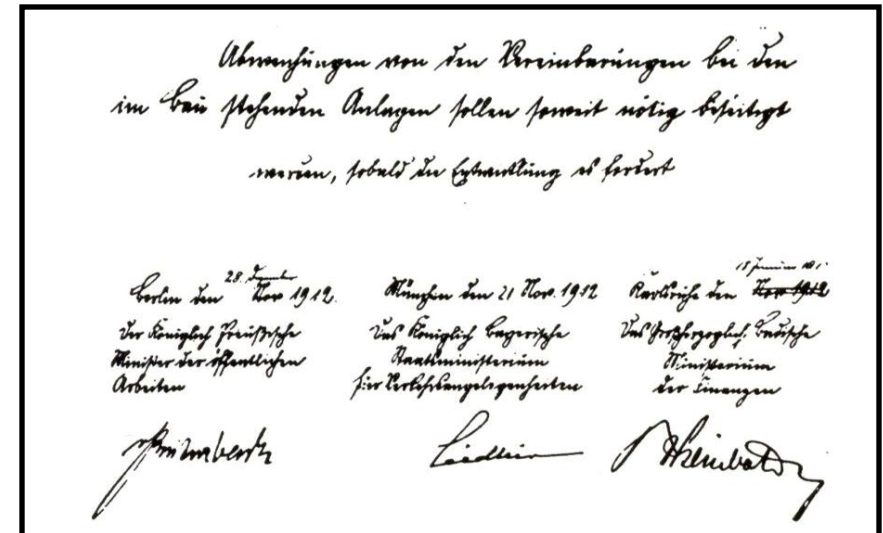 Abweichungen von den Vereinbarungen bei den
im Bau stehenden Anlagen sollen soweit nötig beseitigt
werden, sobald die Entwicklung es fordert
28. Dezember
Berlin den Nov 1912.
Der Königlich Preußische
Minister der öffentlichen
Arbeiten
München den 21 Nov. 1912
Das Königlich Bayerische
Staatsministerium
für Verkehrsangelegenheiten
18 Januar 191
Karlsruhe den Nov 1912
Das Großherzoglich Badische
Ministerium
der Finanzen